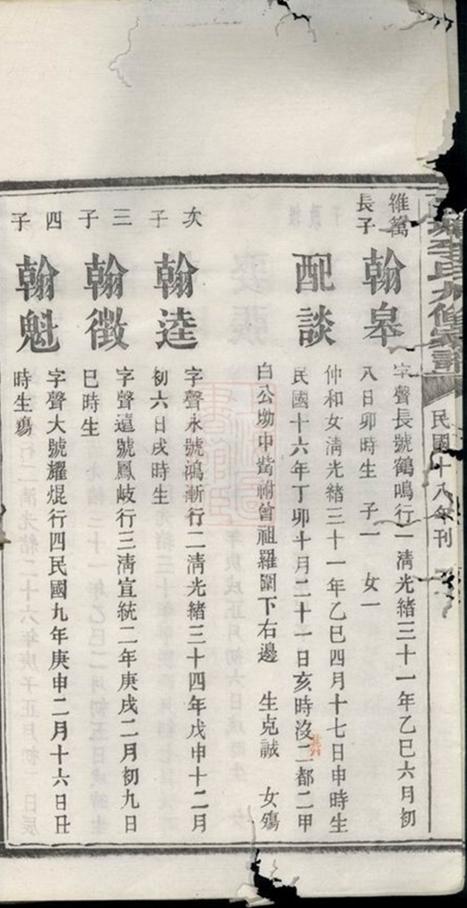 李氏九修宗譜 民國十八年刊
維
長子
翰皋
字聲長號鶴鳴行一清光緒三十一年乙巳六月初
八日卯時生 子一 女一
配談
仲和女清光緒三十一年乙巳四月十七日申時生
民國十六年丁卯十月二十一日亥時沒二都二甲
白公坳中祔曾祖羅圍下右邊 生克誠 女殤
次子
翰逵
字聲永號鴻漸行二清光緒三十四年戊申十二月
初六日戌時生
三子
翰徵
字聲遠號鳳岐行三清宣統二年庚戌二月初九日
巳時生
四子
翰魁
字聲大號耀焜行四民國九年庚申二月十六日丑
時生殤